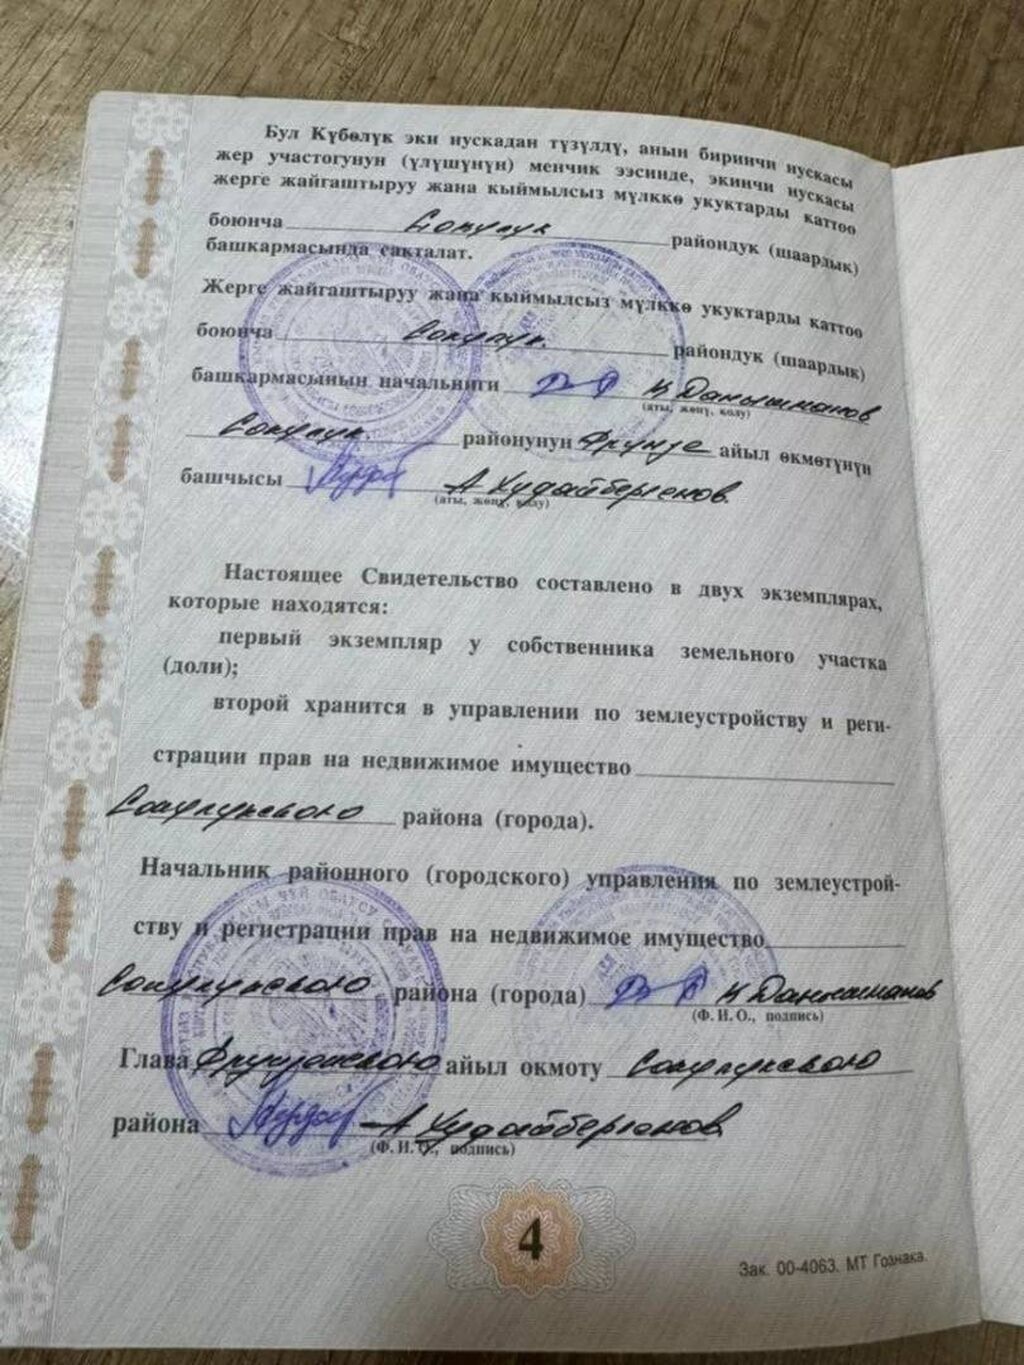 Бул Күбөлүк эки нускадан түзүлдү, анын биринчи нускасы
жер участогунун (үлүшүнүн) менчик ээсинде, экинчи нускасы
жерге жайгаштыруу жана кыймылсыз мүлккө укуктарды каттоо
боюнча Сокулук райондук (шаардык)
башкармасында сакталат.
Жерге жайгаштыруу жана кыймылсыз мүлккө укуктарды каттоо
боюнча Сокулук. райондук (шаардык)
башкармасынын начальниги К Данышманов
(аты, жөнү, колу)
Сокулук. районунун Фрунзе айыл өкмөтүнүн
башчысы А Худайбергенов.
(аты, жөнү, колу)
Настоящее Свидетельство составлено в двух экземплярах,
которые находятся:
первый экземпляр у собственника земельного участка
(доли);
второй хранится в управлении по землеустройству и реги-
страции прав на недвижимое имущество
Сокулукского района (города).
Начальник районного (городского) управления по землеустрой-
ству и регистрации прав на недвижимое имущество
Сокулукского района (города) К Данышманов
(Ф. И. О., подпись)
Глава Фрунзенского айыл окмоту Сокулукского
района А Худайбергенов.
(Ф. И. О., подпись)
4
Зак. 00-4063. МТ Гознака.